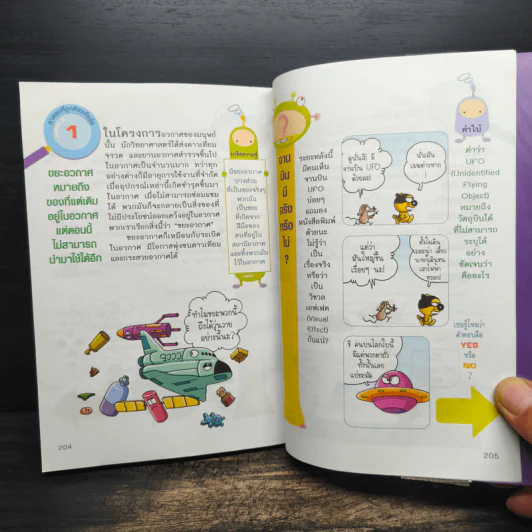 1
ขยะอวกาศ
หมายถึง
ของที่แต่เดิม
อยู่ในอวกาศ
แต่ตอนนี้
ไม่สามารถ
นำมาใช้ได้อีก
ในโครงการอวกาศของมนุษย์
นั้น นักวิทยาศาสตร์ได้ส่งดาวเทียม
จรวด และยานอวกาศสำรวจขึ้นไป
ในอวกาศเป็นจำนวนมาก ทว่าทุก
อย่างต่างก็มีอายุการใช้งานที่จำกัด
เมื่ออุปกรณ์เหล่านี้เกิดชำรุดขึ้นมา
ในอวกาศ เมื่อไม่สามารถซ่อมแซม
ได้ พวกมันก็จะกลายเป็นสิ่งของที่
ไม่มีประโยชน์ลอยเคว้งอยู่ในอวกาศ
พวกเราเรียกสิ่งนี้ว่า "ขยะอวกาศ"
ขยะอวกาศก็เหมือนกับระเบิด
ในอวกาศ มีโอกาสพุ่งชนดาวเทียม
และกระสวยอวกาศได้
เกร็ดความรู้
มีขยะอวกาศ
บางส่วน
ที่เป็นขยะจริงๆ
พวกมัน
เป็นขยะ
ที่เกิดจาก
ฝีมือของ
คนที่อยู่ใน
สถานีอวกาศ
และทิ้งพวกมัน
ไว้ในอวกาศ
ทำไมขยะพวกนี้
ถึงได้วุ่นวาย
อย่างนี้นะ?
204
?
จาน
บิน
มี
จริง
หรือ
ไม่
?
ระยะหลังนี้
มีคนเห็น
จานบิน
UFO
บ่อยๆ
แถมลง
หนังสือพิมพ์
ด้วยนะ
ไม่รู้ว่า
เป็น
เรื่องจริง
หรือว่า
เป็น
วิชวล
เอฟเฟค
(Visual
Effect)
กันแน่?
ดูนั่นสิ! มี
จานบิน UFO
ด้วยละ!
นั่นมัน
เมฆต่างหาก
แต่ว่า
มันใหญ่ขึ้น
เรื่อยๆ นะ!
คำใบ้
คำว่า
UFO
(Unidentified
Flying
Object)
หมายถึง
วัตถุบินได้
ที่ไม่สามารถ
ระบุได้
อย่าง
ชัดเจนว่า
คืออะไร
เธอรู้ไหมว่า
คำตอบคือ
YES
หรือ
NO
?
205